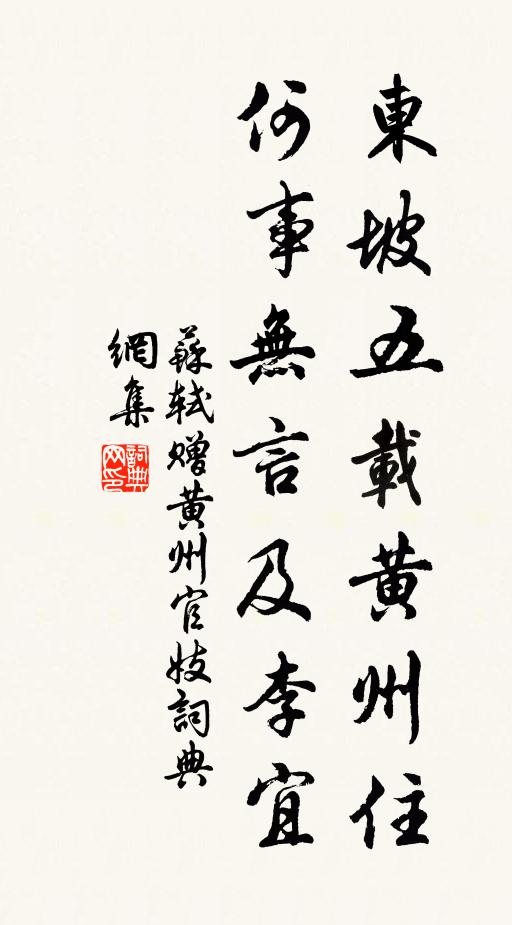 東坡五載黄州住
何事無言及李宜
蘇軾赠黄州官妓詞典
網集
詞典网印